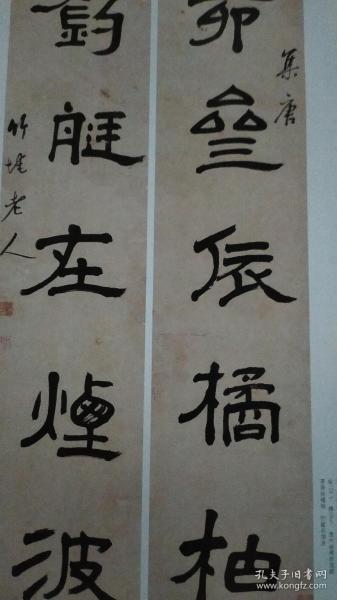 集唐
卯壘依橘柚
釣艇在煙波
竹垞老人
孔夫子旧书网
www.kongfz.com